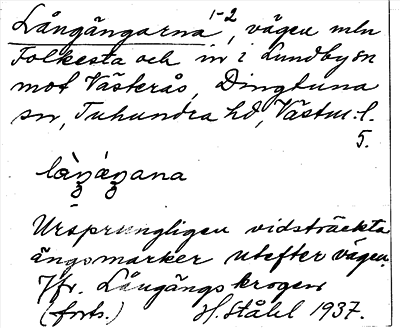 Långängarna 1-2, vägen mln
Folkesta och in i Lundby sn
mot Västerås, Dingtuna
sn, Tuhundra hd, Västm. l.
5.
Ursprungligen vidsträckta
ängsmarker utefter vägen.
Jfr. Långängskrogen
(forts.) H. Ståhl 1937.